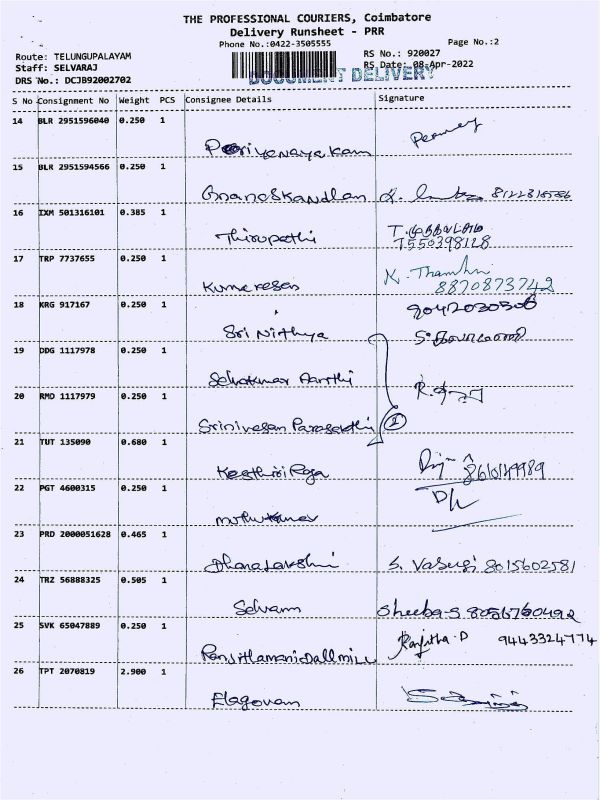 THE PROFESSIONAL COURIERS, Coimbatore
Delivery Runsheet - PRR
Phone No.:0422-3505555
Page No.:2
Route: TELUNGUPALAYAM
RS No.: 920027
Staff: SELVARAJ
RS Date: 08-Apr-2022
DOCUMENT DELIVERY
DRS No.: DCJB92002702
S No Consignment No Weight PCS Consignee Details Signature
14 BLR 2951596040 0.250 1
Periyanayakam
15 BLR 2951594566 0.250 1
GnanaSkandhan
16 IXM 501316101 0.385 1
Thirupathi
7550398128
17 TRP 7737655 0.250 1
Kumaresan K. Thamhi
8870873742
18 KRG 917167 0.250 1
9042030506
Sri Nithya
19 DDG 1117978 0.250 1
Selvakumar Aarthi
20 RMD 1117979 0.250 1
Srinivasan Parasakthi
21 TUT 135090 0.680 1
Keerthi Roja
22 PGT 4600315 0.250 1
muthukumar
23 PRD 2000051628 0.465 1
Dhanalakshmi S. Vasugi 8015602581
24 TRZ 56888325 0.505 1
Selvam Sheeba-S 8056760492
25 SVK 65047889 0.250 1
Ranjithamani Dall mill Ranjitha.D 9443324774
26 TPT 2070819 2.900 1
Elagovan